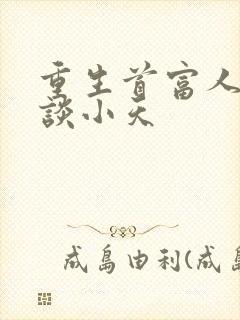 重生首富人
談小天
成島由利(成島